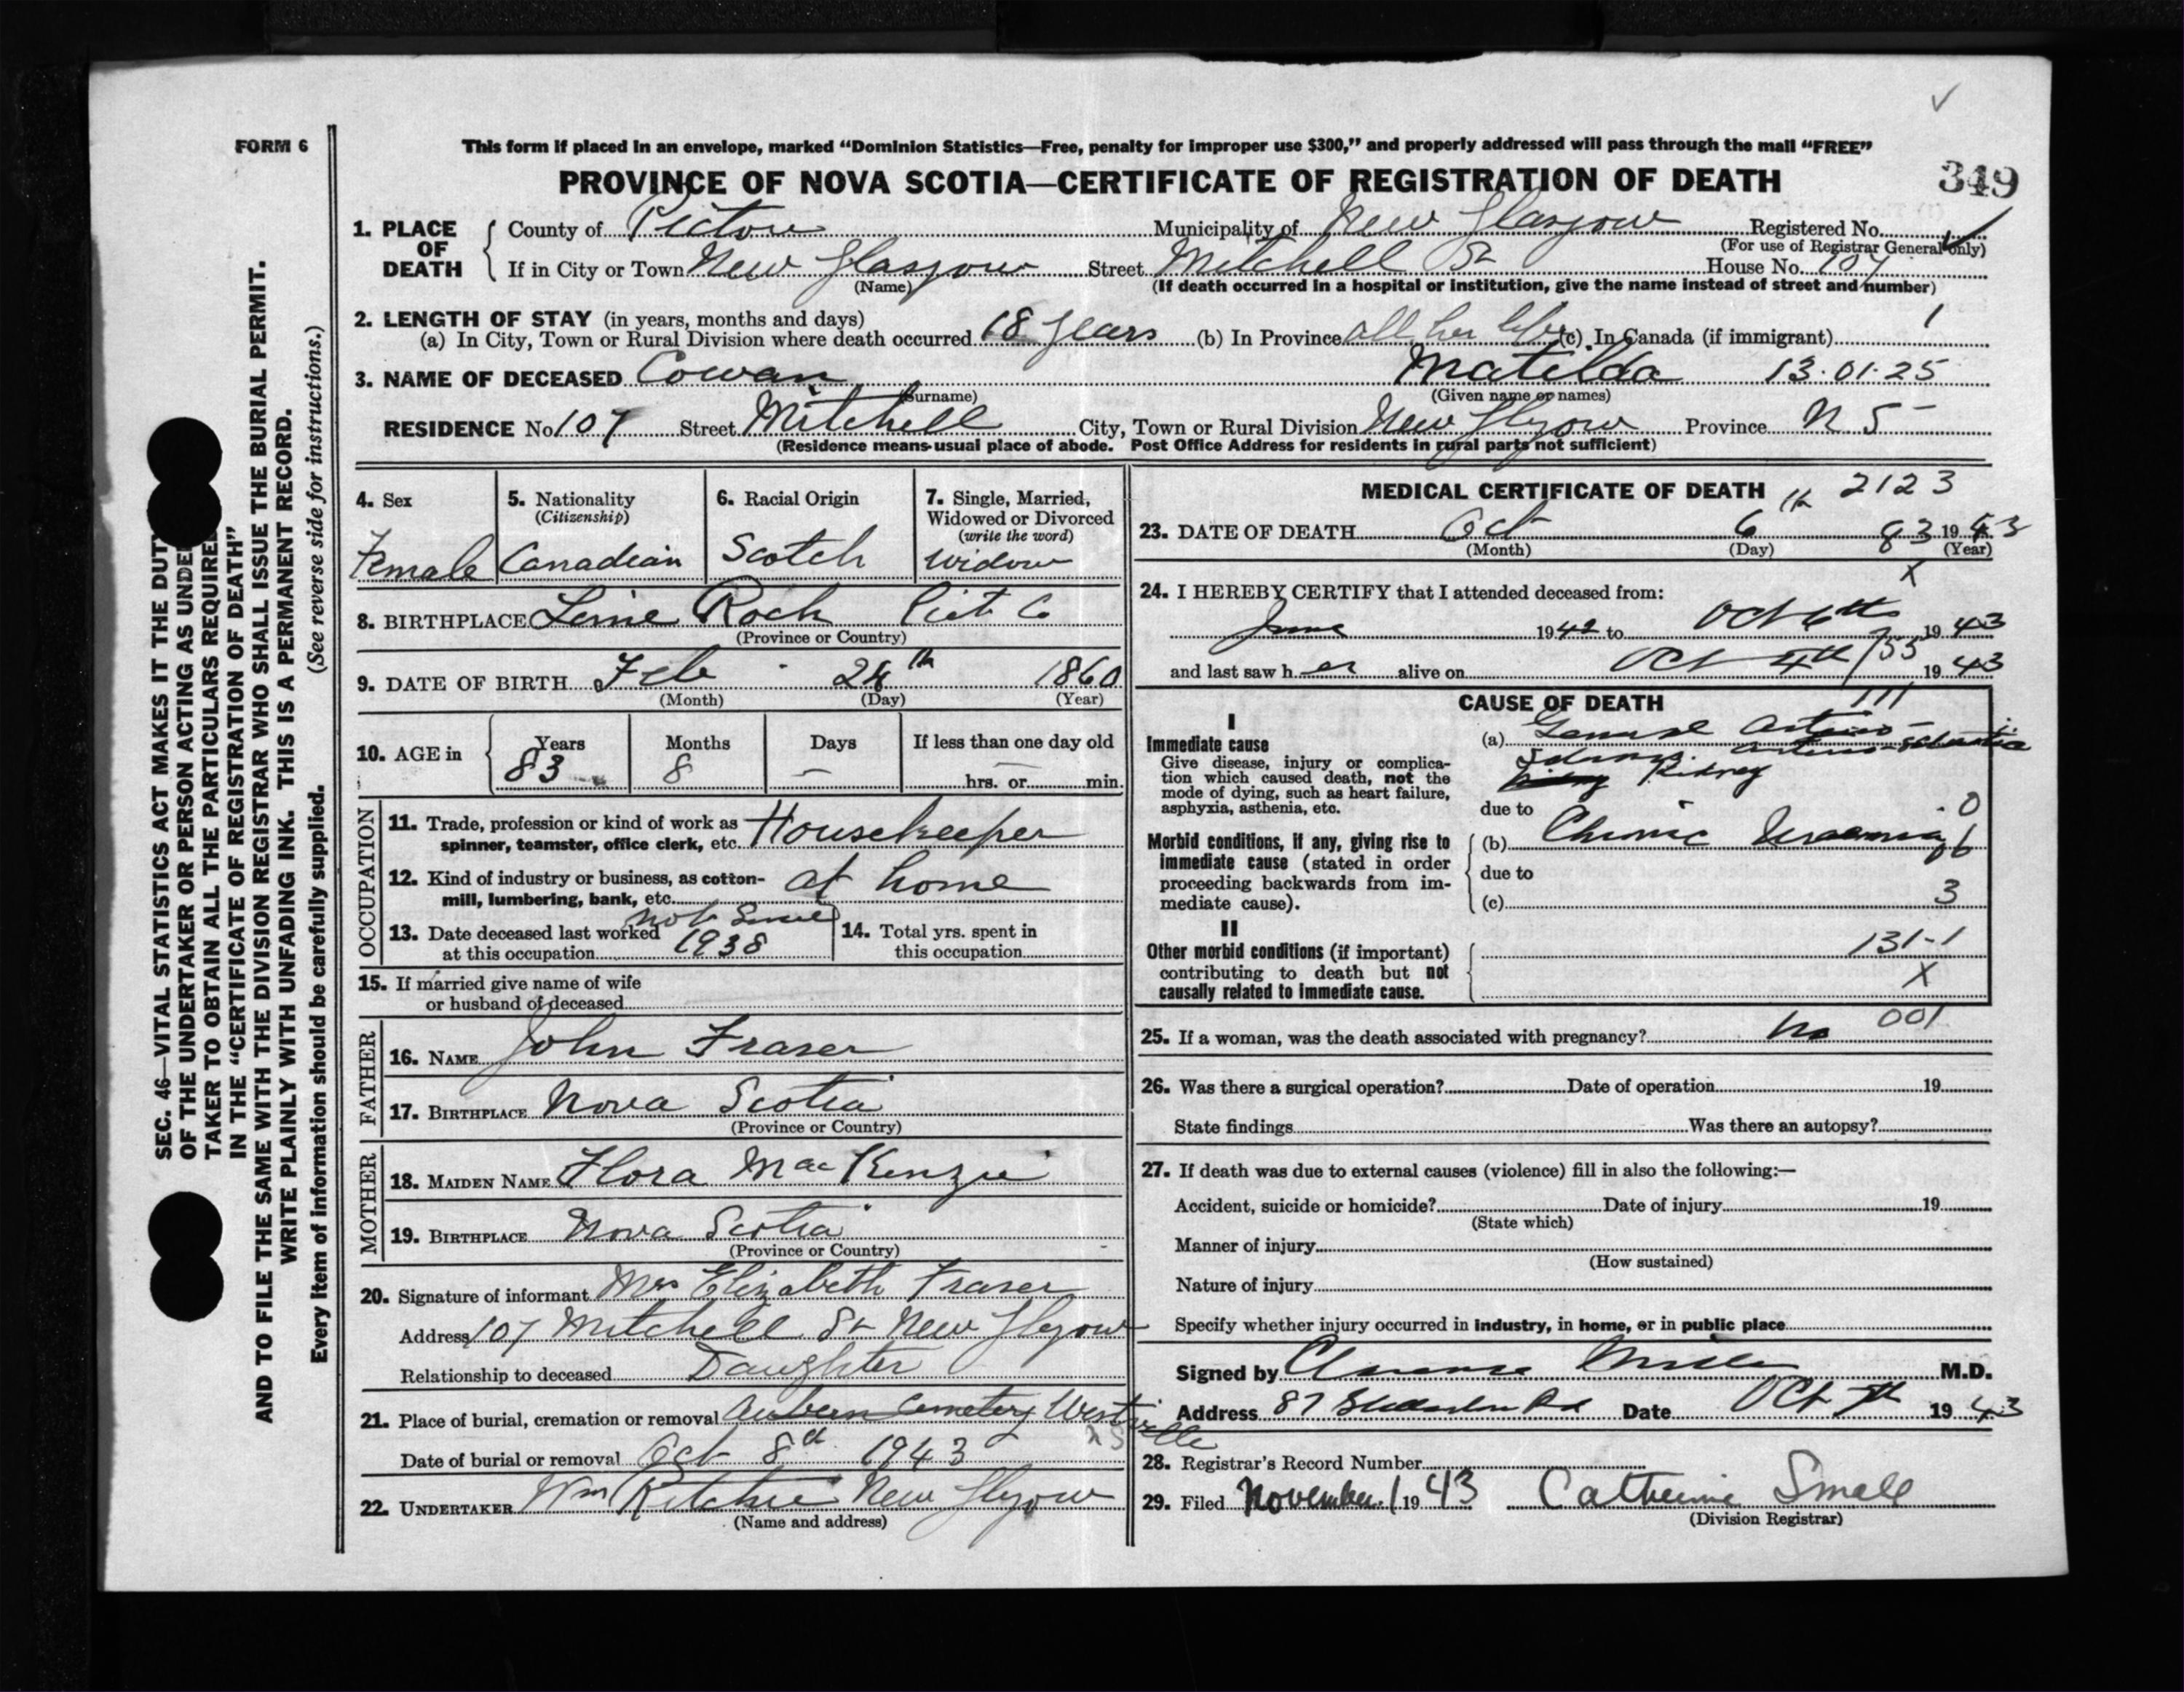 FORM 6
This form if placed in an envelope, marked “Dominion Statistics—Free, penalty for improper use $300,” and properly addressed will pass through the mail “FREE”
PROVINCE OF NOVA SCOTIA—CERTIFICATE OF REGISTRATION OF DEATH
349
1. PLACE OF DEATH
County of Pictou Municipality of New Glasgow Registered No.
(For use of Registrar General only)
If in City or Town New Glasgow Street Mitchell St House No. 107
(Name) (If death occurred in a hospital or institution, give the name instead of street and number)
2. LENGTH OF STAY (in years, months and days) 1
(a) In City, Town or Rural Division where death occurred 18 years (b) In Province all her life (c) In Canada (if immigrant)
3. NAME OF DECEASED Cowan Matilda 13.01.25
(Surname) (Given name or names)
RESIDENCE No 107 Street Mitchell City, Town or Rural Division New Glgow Province N S
(Residence means usual place of abode. Post Office Address for residents in rural parts not sufficient)
4. Sex Female
5. Nationality (Citizenship) Canadian
6. Racial Origin Scotch
7. Single, Married, Widowed or Divorced (write the word) Widow
8. BIRTHPLACE Lime Rock Pict Co
(Province or Country)
9. DATE OF BIRTH Feb 24th 1860
(Month) (Day) (Year)
10. AGE in Years 83 Months 8 Days — If less than one day old — hrs. or min.
OCCUPATION
11. Trade, profession or kind of work as spinner, teamster, office clerk, etc. Housekeeper
12. Kind of industry or business, as cotton-mill, lumbering, bank, etc. at home
13. Date deceased last worked at this occupation not since 1938
14. Total yrs. spent in this occupation
15. If married give name of wife or husband of deceased
FATHER
16. NAME John Fraser
17. BIRTHPLACE Nova Scotia
(Province or Country)
MOTHER
18. MAIDEN NAME Flora MacKenzie
19. BIRTHPLACE Nova Scotia
(Province or Country)
20. Signature of informant Mrs Elizabeth Fraser
Address 107 Mitchell St New Glgow
Relationship to deceased Daughter
21. Place of burial, cremation or removal Auburn Cemetery Westville
N S
Date of burial or removal Oct 8th 1943
22. UNDERTAKER Wm Ritchie New Glgow
(Name and address)
MEDICAL CERTIFICATE OF DEATH 2123
23. DATE OF DEATH Oct 6th 83 1943
(Month) (Day) (Year)
X
24. I HEREBY CERTIFY that I attended deceased from:
June 1942 to Oct 6th 1943
and last saw her alive on Oct 4th 1943
CAUSE OF DEATH
I
Immediate cause
Give disease, injury or complication which caused death, not the mode of dying, such as heart failure, asphyxia, asthenia, etc.
(a) General Arterio-
Kidney
due to
Morbid conditions, if any, giving rise to immediate cause (stated in order proceeding backwards from immediate cause).
(b) Chronic Uraemia
due to
(c) 3
II
Other morbid conditions (if important) contributing to death but not causally related to immediate cause.
131-1
X
25. If a woman, was the death associated with pregnancy? No 001
26. Was there a surgical operation? Date of operation 19
State findings Was there an autopsy?
27. If death was due to external causes (violence) fill in also the following:—
Accident, suicide or homicide? Date of injury 19
(State which)
Manner of injury
(How sustained)
Nature of injury
Specify whether injury occurred in industry, in home, or in public place
Signed by Clarence Miller M.D.
Address 87 Date Oct 7th 1943
28. Registrar's Record Number
29. Filed November 1 1943 Catherine Small
(Division Registrar)
SEC. 46—VITAL STATISTICS ACT MAKES IT THE DUTY
OF THE UNDERTAKER OR PERSON ACTING AS UNDER
TAKER TO OBTAIN ALL THE PARTICULARS REQUIRED
IN THE “CERTIFICATE OF REGISTRATION OF DEATH”
AND TO FILE THE SAME WITH THE DIVISION REGISTRAR WHO SHALL ISSUE THE BURIAL PERMIT.
WRITE PLAINLY WITH UNFADING INK. THIS IS A PERMANENT RECORD.
Every item of information should be carefully supplied. (See reverse side for instructions.)